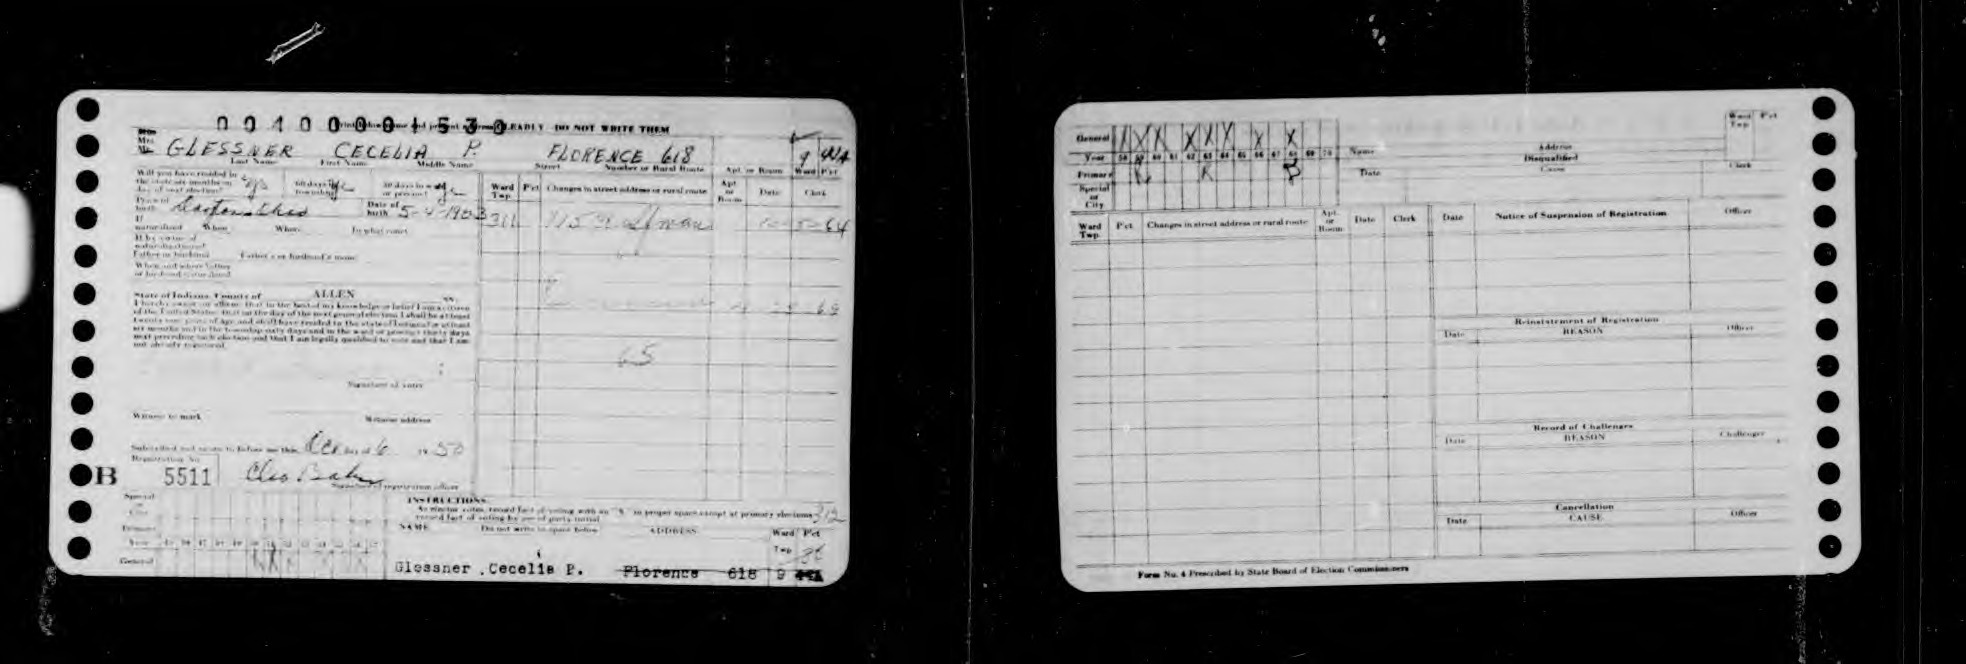 00400001530
CLEARLY DO NOT WRITE THEM
Mrs.
GLESSNER CECELIA P. FLORENCE 618 9
Last Name First Name Middle Name Street Number or Rural Route Apt. or Room Ward Pct
Will you have resided in the state six months on day of next election? yes 60 days in township? 30 days in ward or precinct?
Ward Twp. Pct Changes in street address or rural route Apt. or Room Date Clerk
Place of birth Date of birth 5-4-1903
311 115 64
If naturalized When Where By what court
If by virtue of naturalization of
Father or husband Father's or husband's name
When and where father or husband naturalized
69
State of Indiana, County of ALLEN SS:
I hereby swear or affirm that to the best of my knowledge or belief I am a citizen
of the United States, that on the day of the next general election I shall be at least
twenty-one years of age and shall have resided in the state of Indiana for at least
six months and in the township sixty days and in the ward or precinct thirty days
next preceding such election and that I am legally qualified to vote and that I am
not already registered.
65
Signature of voter
Witness to mark Witness address
Subscribed and sworn to before me this day of 6 19 50
Registration No.
B 5511 Cleo
Signature of registration officer
INSTRUCTIONS
As elector votes, record fact of voting with an "X" in proper space except at primary elections 312
record fact of voting by use of party initial
Special or City
Primary
NAME Do not write in space below ADDRESS Ward Twp. Pct
Year 45 46 47 48 49 50 51 52 53 54 55 56 57
General
Glessner, Cecelia P. Florence 618 9
General X X X X X X X X
Year 58 59 60 61 62 63 64 65 66 67 68 69 70
Primary R R R
Special or City
Name Address Ward Twp. Pct
Disqualified
Date Cause Clerk
Ward Twp. Pct Changes in street address or rural route Apt. or Room Date Clerk
Date Notice of Suspension of Registration Officer
Reinstatement of Registration
Date REASON Officer
Record of Challenges
Date REASON Challenger
Cancellation
Date CAUSE Officer
Form No. 4 Prescribed by State Board of Election Commissioners